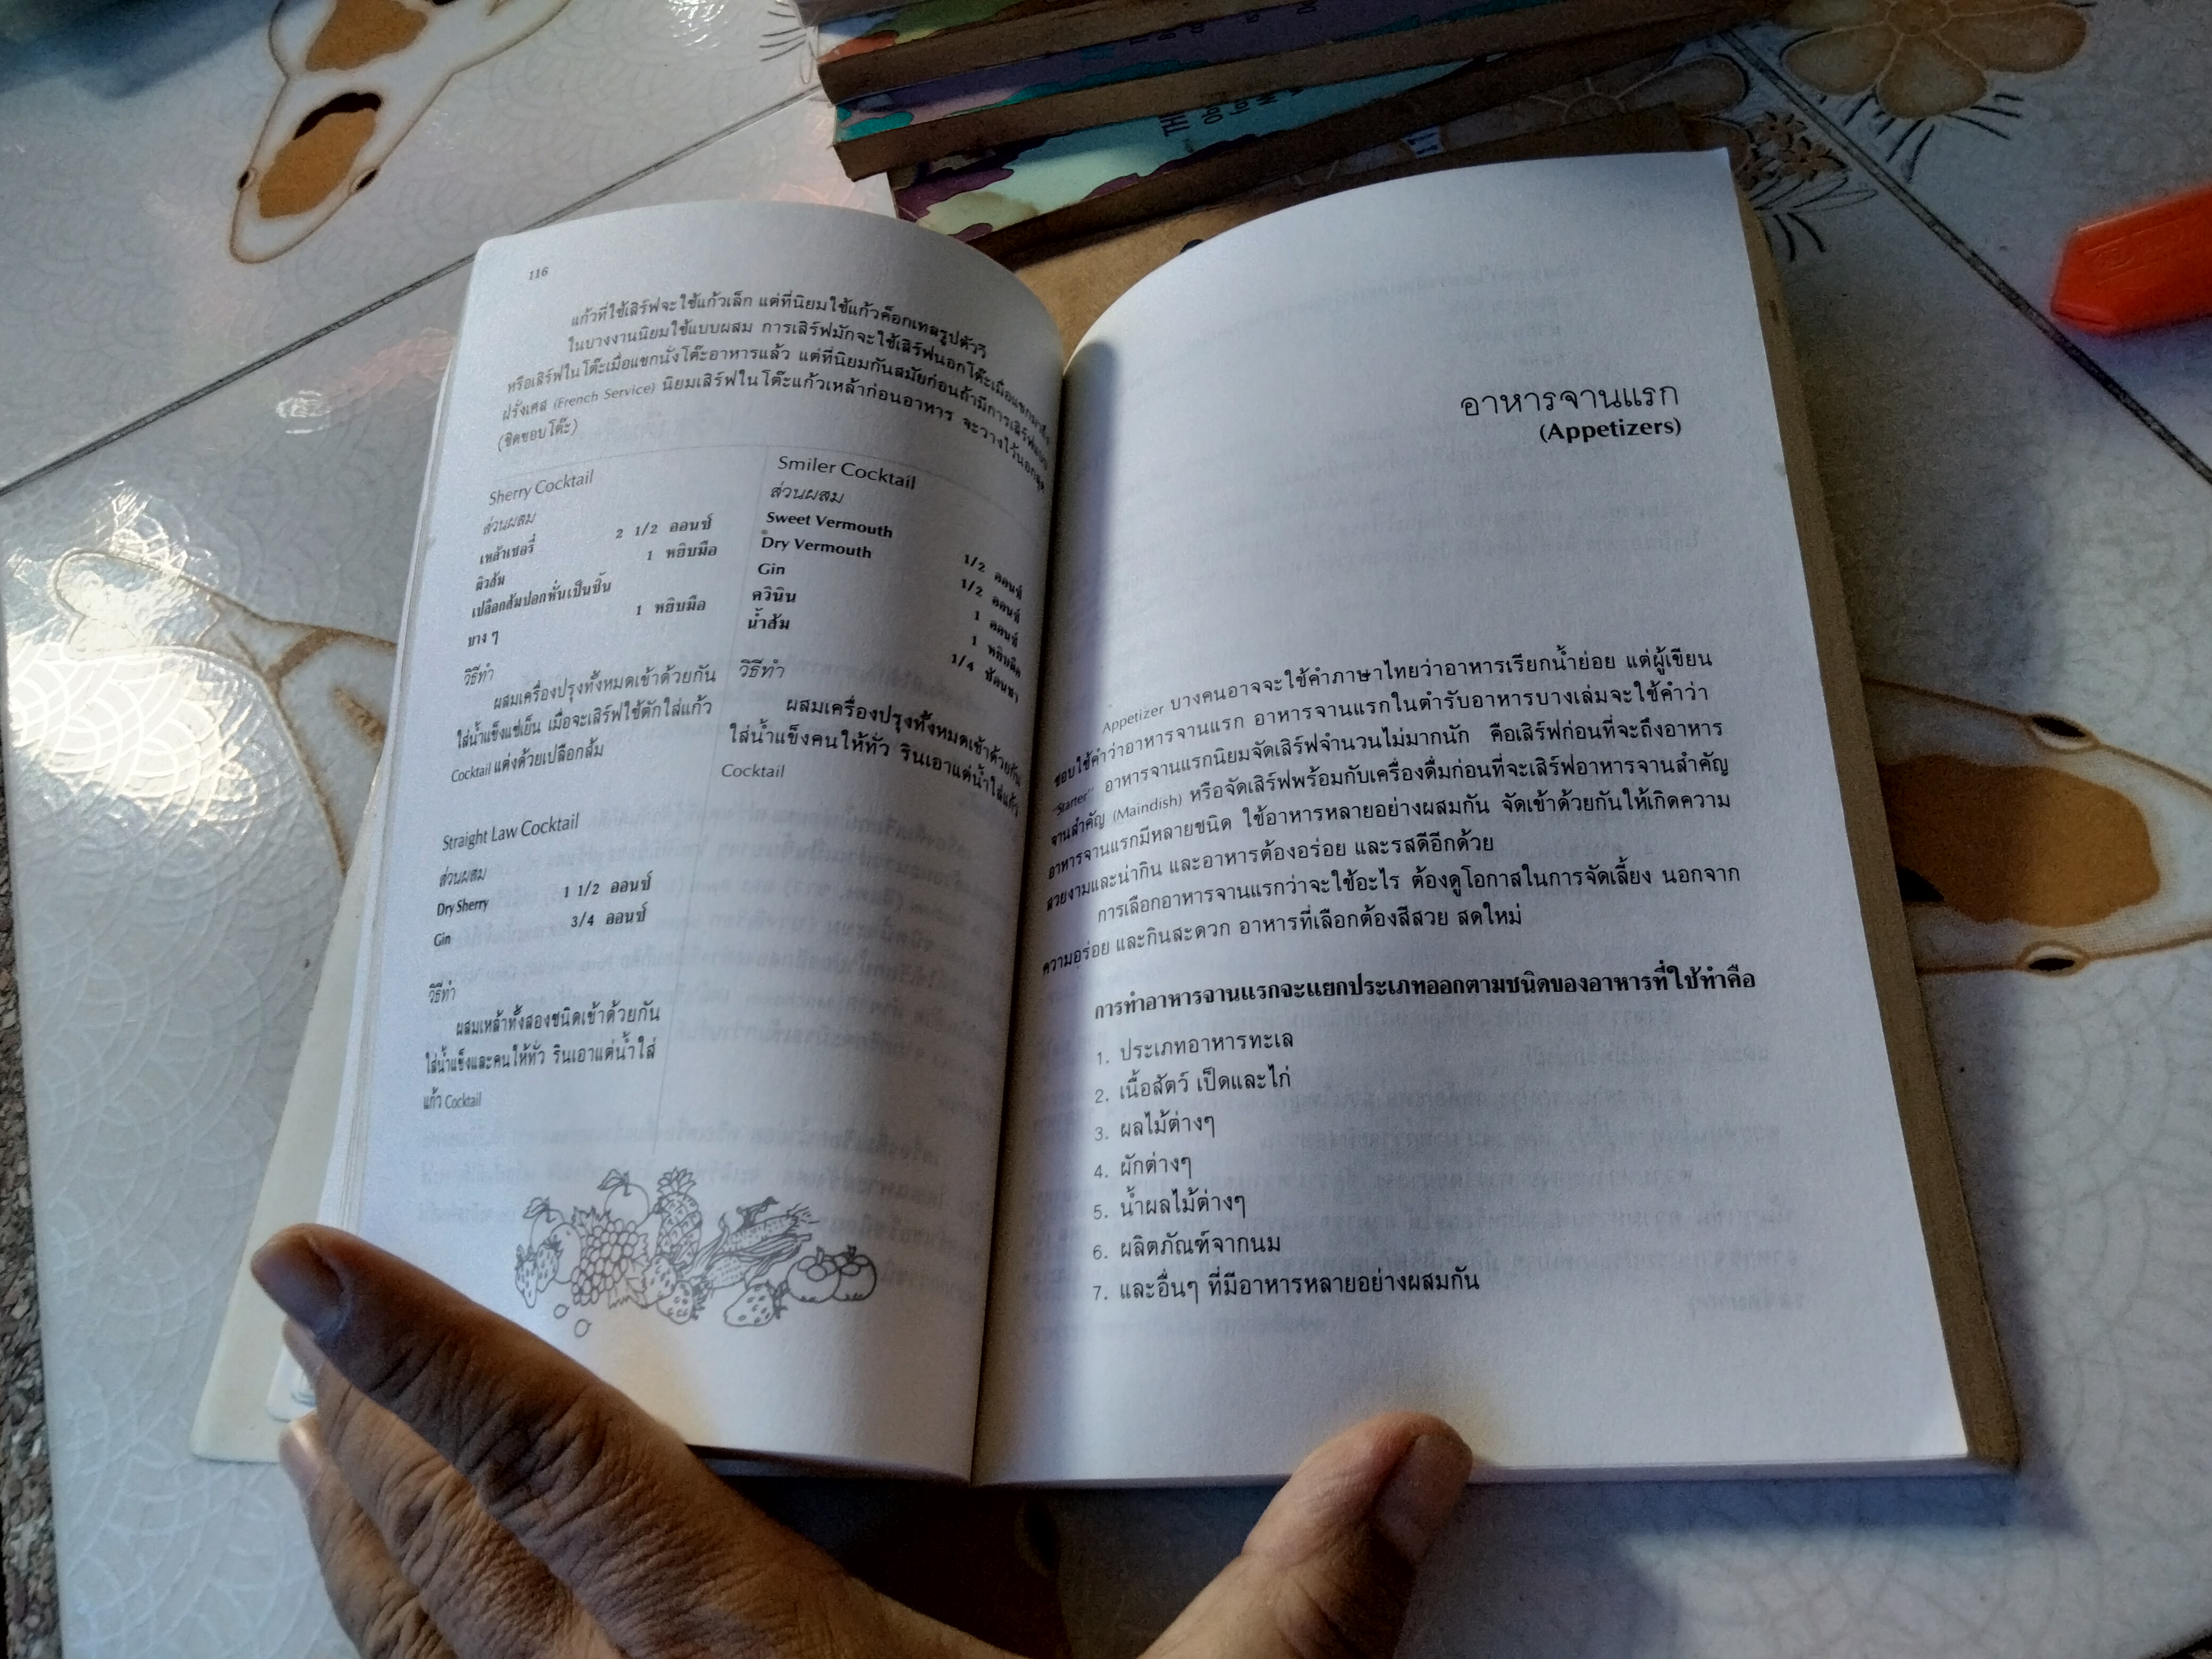 116
แก้วที่ใช้เสิร์ฟจะใช้แก้วเล็ก แต่ที่นิยมใช้แก้วค็อกเทลรูปตัววี
ในบางงานนิยมใช้แบบผสม การเสิร์ฟมักจะใช้เสิร์ฟนอกโต๊ะเมื่อแขกมาถึง
หรือเสิร์ฟในโต๊ะเมื่อแขกนั่งโต๊ะอาหารแล้ว แต่ที่นิยมกันสมัยก่อนถ้ามีการเสิร์ฟแบบ
ฝรั่งเศส (French Service) นิยมเสิร์ฟในโต๊ะแก้วเหล้าก่อนอาหาร จะวางไว้นอกสุด
(ชิดขอบโต๊ะ)
Sherry Cocktail
ส่วนผสม
เหล้าเชอรี่ 2 1/2 ออนซ์
ผิวส้ม 1 หยิบมือ
เปลือกส้มปอกหั่นเป็นชิ้น
บาง ๆ 1 หยิบมือ
วิธีทำ
ผสมเครื่องปรุงทั้งหมดเข้าด้วยกัน
ใส่น้ำแข็งแช่เย็น เมื่อจะเสิร์ฟใช้ตักใส่แก้ว
Cocktail แต่งด้วยเปลือกส้ม
Straight Law Cocktail
ส่วนผสม
Dry Sherry 1 1/2 ออนซ์
Gin 3/4 ออนซ์
วิธีทำ
ผสมเหล้าทั้งสองชนิดเข้าด้วยกัน
ใส่น้ำแข็งและคนให้ทั่ว รินเอาแต่น้ำใส่
แก้ว Cocktail
Smiler Cocktail
ส่วนผสม
Sweet Vermouth 1/2 ออนซ์
Dry Vermouth 1/2 ออนซ์
Gin 1 ออนซ์
ควินิน 1 หยิบมือ
น้ำส้ม 1/4 ช้อนชา
วิธีทำ
ผสมเครื่องปรุงทั้งหมดเข้าด้วยกัน
ใส่น้ำแข็งคนให้ทั่ว รินเอาแต่น้ำใส่แก้ว
Cocktail
อาหารจานแรก
(Appetizers)
Appetizer บางคนอาจจะใช้คำภาษาไทยว่าอาหารเรียกน้ำย่อย แต่ผู้เขียน
ชอบใช้คำว่าอาหารจานแรก อาหารจานแรกในตำรับอาหารบางเล่มจะใช้คำว่า
"Starter" อาหารจานแรกนิยมจัดเสิร์ฟจำนวนไม่มากนัก คือเสิร์ฟก่อนที่จะถึงอาหาร
จานสำคัญ (Maindish) หรือจัดเสิร์ฟพร้อมกับเครื่องดื่มก่อนที่จะเสิร์ฟอาหารจานสำคัญ
อาหารจานแรกมีหลายชนิด ใช้อาหารหลายอย่างผสมกัน จัดเข้าด้วยกันให้เกิดความ
สวยงามและน่ากิน และอาหารต้องอร่อย และรสดีอีกด้วย
การเลือกอาหารจานแรกว่าจะใช้อะไร ต้องดูโอกาสในการจัดเลี้ยง นอกจาก
ความอร่อย และกินสะดวก อาหารที่เลือกต้องสีสวย สดใหม่
การทำอาหารจานแรกจะแยกประเภทออกตามชนิดของอาหารที่ใช้ทำคือ
1. ประเภทอาหารทะเล
2. เนื้อสัตว์ เป็ดและไก่
3. ผลไม้ต่างๆ
4. ผักต่างๆ
5. น้ำผลไม้ต่างๆ
6. ผลิตภัณฑ์จากนม
7. และอื่นๆ ที่มีอาหารหลายอย่างผสมกัน